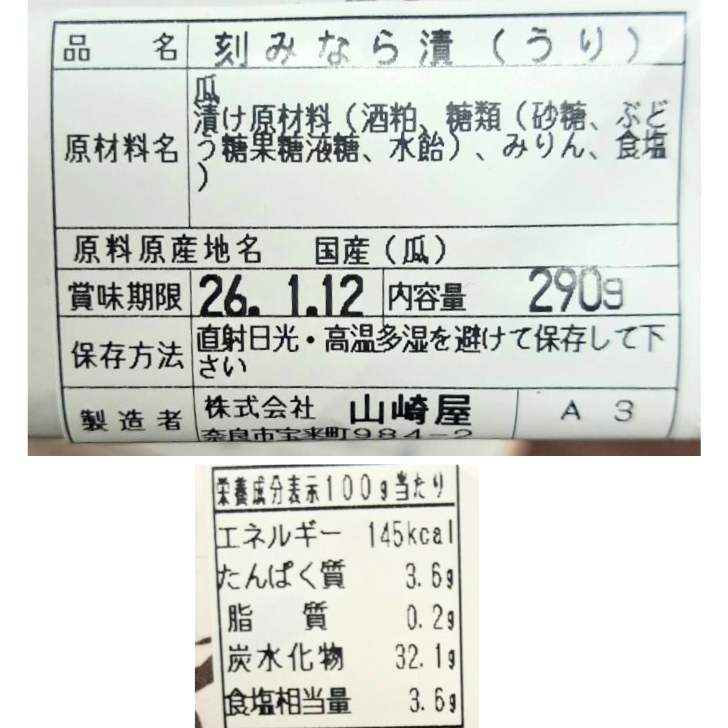 品名 刻みなら漬(うり)
原材料名 瓜
漬け原材料(酒粕、糖類(砂糖、ぶど
う糖果糖液糖、水飴)、みりん、食塩
)
原料原産地名 国産(瓜)
賞味期限 26. 1.12 内容量 290g
保存方法 直射日光・高温多湿を避けて保存して下
さい
製造者 株式会社 山崎屋 A3
奈良市宝来町984-2
栄養成分表示100g当たり
エネルギー 145kcal
たんぱく質 3.6g
脂質 0.2g
炭水化物 32.1g
食塩相当量 3.6g